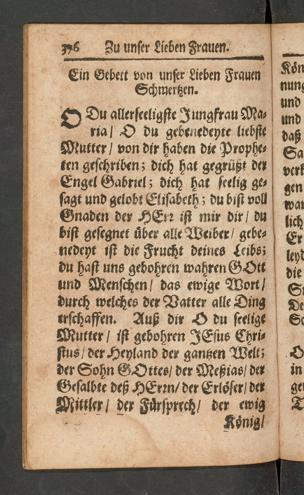 376 Zu unser Lieben Frauen.
Ein Gebett von unser Lieben Frauen
Schmertzen.
O Du allerseeligste Jungfrau Ma-
ria/ O du gebenedeyte liebste
Mutter/ von dir haben die Prophe-
ten geschriben; dich hat gegrüßt der
Engel Gabriel; dich hat seelig ge-
sagt und gelobt Elisabeth; du bist voll
Gnaden der HErr ist mit dir/ du
bist gesegnet über alle Weiber/ gebe-
nedeyt ist die Frucht deines Leibs;
du hast uns gebohren wahren GOtt
und Menschen/ das ewige Wort/
durch welches der Vatter alle Ding
erschaffen. Auß dir O du seelige
Mutter/ ist gebohren JEsus Chri-
stus/ der Heyland der gantzen Welt;
der Sohn GOttes/ der Meßias/ der
Gesalbte deß HErrn/ der Erlöser/ der
Mittler/ der Fürsprech/ der ewig
König/